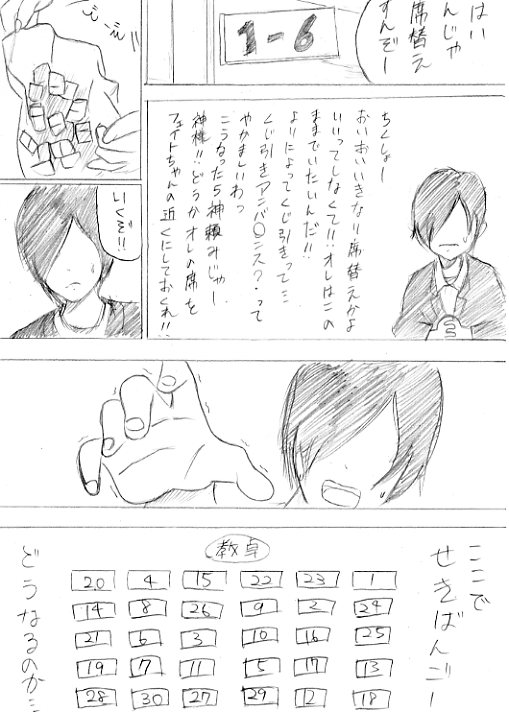 はい
んじゃ
席替え
すんぞー
1-6
ちくしょー
おいおいいきなり席替えかよ
いいってしなくて!!オレはこの
ままでいたいんだ!!
よりによってくじ引きって…
くじ引きアンバ〇ンス?・って
やかましいわっ
こうなったら神頼みじゃー
神様!!どうかオレの席を
フェイトちゃんの近くにしておくれ!!
いくぞ!!
ここで
せきばんごー
教卓
20 4 15 22 23 1
14 8 26 9 2 24
21 6 3 10 16 25
19 7 11 5 17 13
28 30 27 29 12 18
どうなるのか…